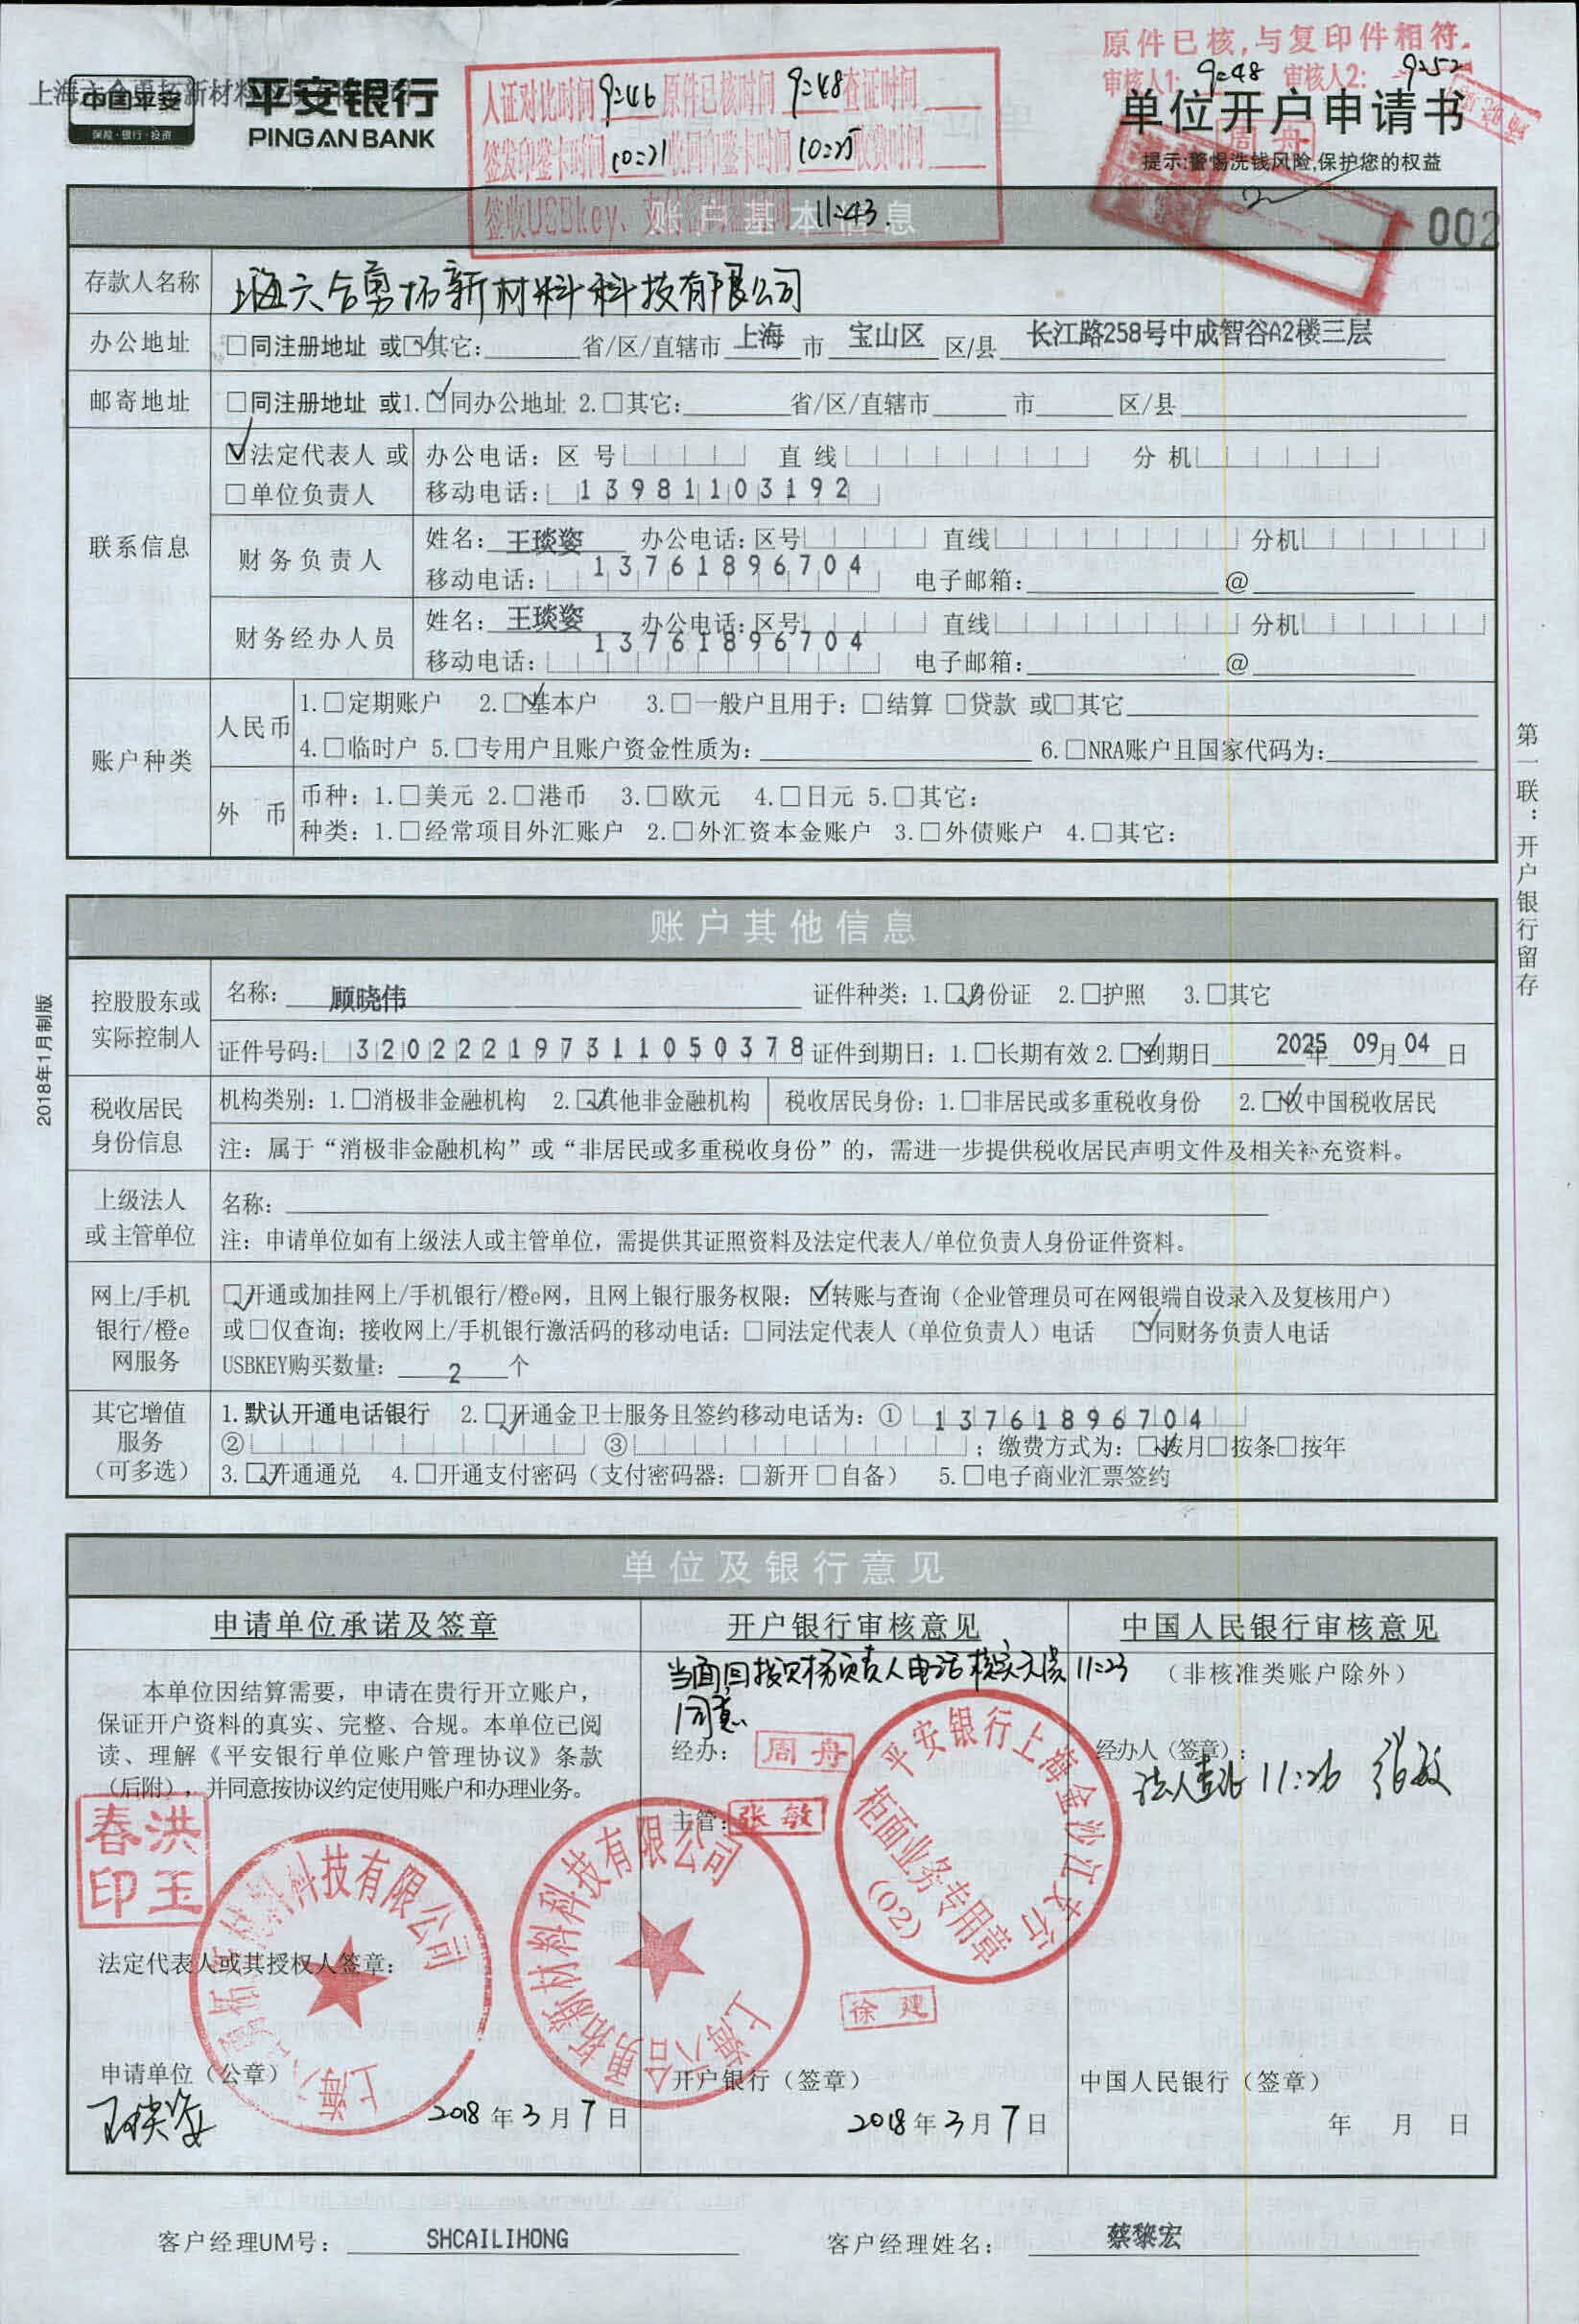 原件已核,与复印件相符。
审核人1: 9:48 审核人2: 9:52
中国平安
保险·银行·投资
平安银行
PINGAN BANK
人证对比时间 9:46 原件已核时间 9:48 查证时间
签发印鉴卡时间 10:21 收回印鉴卡时间 10:25 收费时间
签收USBkey、 11:43.
单位开户申请书
周舟
提示:警惕洗钱风险,保护您的权益
账户基本信息
002
存款人名称 上海六合勇拓新材料科技有限公司
办公地址 □同注册地址 或☑其它: 省/区/直辖市 上海 市 宝山区 区/县 长江路258号中成智谷A2楼三层
邮寄地址 □同注册地址 或1.☑同办公地址 2.□其它: 省/区/直辖市 市 区/县
联系信息
☑法定代表人 或 办公电话: 区号 直线 分机
□单位负责人 移动电话: 13981103192
财务负责人 姓名: 王琰姿 办公电话: 区号 直线 分机
移动电话: 13761896704 电子邮箱: @
财务经办人员 姓名: 王琰姿 办公电话: 区号 直线 分机
移动电话: 13761896704 电子邮箱: @
账户种类
人民币 1.□定期账户 2.☑基本户 3.□一般户且用于: □结算 □贷款 或□其它
4.□临时户 5.□专用户且账户资金性质为: 6.□NRA账户且国家代码为:
外币 币种: 1.□美元 2.□港币 3.□欧元 4.□日元 5.□其它:
种类: 1.□经常项目外汇账户 2.□外汇资本金账户 3.□外债账户 4.□其它:
第一联:开户银行留存
2018年1月制版
账户其他信息
控股股东或实际控制人 名称: 顾晓伟 证件种类: 1.☑身份证 2.□护照 3.□其它
证件号码: 320222197311050378 证件到期日: 1.□长期有效 2.☑到期日 2025年 09月 04日
税收居民身份信息 机构类别: 1.□消极非金融机构 2.☑其他非金融机构 税收居民身份: 1.□非居民或多重税收身份 2.☑仅中国税收居民
注: 属于“消极非金融机构”或“非居民或多重税收身份”的, 需进一步提供税收居民声明文件及相关补充资料。
上级法人或主管单位 名称:
注: 申请单位如有上级法人或主管单位, 需提供其证照资料及法定代表人/单位负责人身份证件资料。
网上/手机银行/橙e网服务 ☑开通或加挂网上/手机银行/橙e网, 且网上银行服务权限: ☑转账与查询 (企业管理员可在网银端自设录入及复核用户)
或□仅查询; 接收网上/手机银行激活码的移动电话: □同法定代表人 (单位负责人) 电话 ☑同财务负责人电话
USBKEY购买数量: 2 个
其它增值服务(可多选) 1.默认开通电话银行 2.☑开通金卫士服务且签约移动电话为: ① 13761896704
② ③ ; 缴费方式为: ☑按月□按条□按年
3.☑开通通兑 4.□开通支付密码 (支付密码器: □新开 □自备) 5.□电子商业汇票签约
单位及银行意见
申请单位承诺及签章
本单位因结算需要, 申请在贵行开立账户,
保证开户资料的真实、完整、合规。本单位已阅
读、理解《平安银行单位账户管理协议》条款
(后附), 并同意按协议约定使用账户和办理业务。
洪玉春印
法定代表人或其授权人签章:
上海六合勇拓新材料科技有限公司
申请单位 (公章)
王琰姿
2018年3月7日
开户银行审核意见
当面回拨财务负责人电话核实无误 11:23
同意
经办: 周舟
主管: 张敏
平安银行上海金沙江支行
柜面业务专用章
(02)
上海六合勇拓新材料科技有限公司
徐建
开户银行 (签章)
2018年3月7日
中国人民银行审核意见
(非核准类账户除外)
经办人 (签章):
11:26 张敏
中国人民银行 (签章)
年 月 日
客户经理UM号: SHCAILIHONG
客户经理姓名: 蔡黎宏